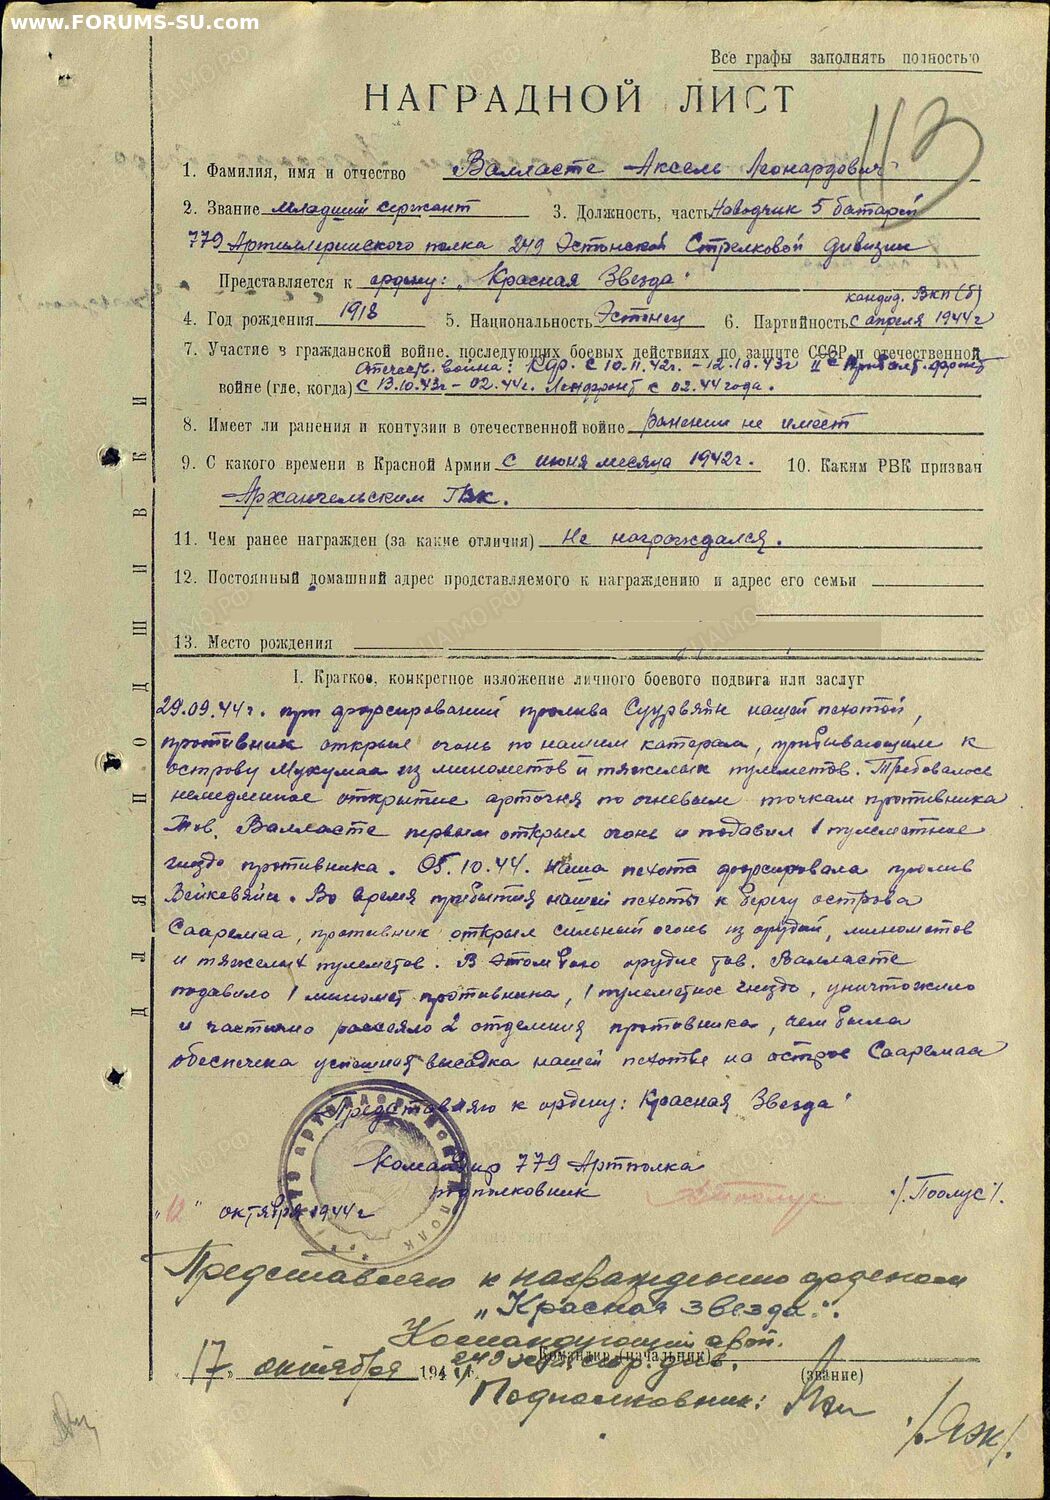 www.FORUMS-SU.com
Все графы заполнять полностью
НАГРАДНОЙ ЛИСТ
113
1. Фамилия, имя и отчество Валласте Аксель Леонардович
2. Звание младший сержант 3. Должность, часть Наводчик 5 батареи
779 Артиллерийского полка 249 Эстонской Стрелковой дивизии
Представляется к ордену: „Красная Звезда"
4. Год рождения 1918 5. Национальность Эстонец 6. Партийность кандид. ВКП(б)
с апреля 1944 г
7. Участие в гражданской войне, последующих боевых действиях по защите СССР и отечественной
Отечеств. война: КФр. с 10.11.42г. - 12.10.43г II й Прибалт. фронт
войне (где, когда) с 13.10.43г - 02.44г. Ленфронт с 02.44 года.
8. Имеет ли ранения и контузии в отечественной войне ранении не имеет
9. С какого времени в Красной Армии с июня месяца 1942г. 10. Каким РВК призван
Архангельским ГВК.
11. Чем ранее награжден (за какие отличия) Не награждался.
12. Постоянный домашний адрес продставляемого к награждению и адрес его семьи
13. Место рождения
I. Краткое, конкретное изложение личного боевого подвига или заслуг
29.09.44г. при форсировании пролива Суурвяйн нашей пехотой,
противник открыл огонь по нашим катерам, прибывающим к
острову Мухумаа из минометов и тяжелых пулеметов. Требовалось
немедленное открытие артогня по огневым точкам противника
Тов. Валласте первым открыл огонь и подавил 1 пулеметное
гнездо противника. 05.10.44. наша пехота форсировала пролив
Вейкевяйн. Во время прибытия нашей пехоты к берегу острова
Сааремаа, противник открыл сильный огонь из орудий, минометов
и тяжелых пулеметов. В этом бою орудие тов. Валласте
подавило 1 миномет противника, 1 пулеметное гнездо, уничтожило
и частично рассеяло 2 отделения противника, чем была
обеспечена успешная высадка нашей пехоты на остров Сааремаа
Представляю к ордену: Красная Звезда"
Командир 779 Артполка
подполковник /Поолус/.
„12" октября 1944г
Представляю к награждению орденом
„Красная звезда".
Командующий арт.
249 эст. стр. див.
Командир (начальник)
17 „ октября 1944 г.
(звание)
Подполковник:
/Яэк/.
ДЛЯ ПОДШИВКИ